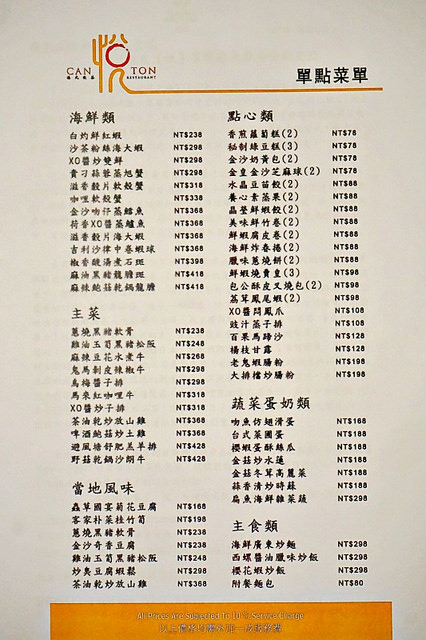 悅
CAN TON
RESTAURANT
單點菜單
海鮮類
白灼鮮紅蝦 NT$238
沙茶粉絲海大蝦 NT$298
XO醬炒雙鮮 NT$298
貴刁蒜蓉蒸旭蟹 NT$298
溢香穀片軟殼蟹 NT$318
咖哩軟殼蟹 NT$338
金沙吻仔蒸鱈魚 NT$368
荷香XO醬蒸鱸魚 NT$368
溢香穀片海大蝦 NT$368
吉利沙律中卷蝦球 NT$368
椒香酸湯煮石斑 NT$398
麻油黑豬龍膽斑 NT$418
麻辣鮑菇乾鍋龍膽 NT$418
主菜
蔥燒黑豬軟骨 NT$238
雞油玉筍黑豬松阪 NT$248
麻辣豆花水煮牛 NT$268
鬼馬剝皮辣椒牛 NT$298
烏梅醬子排 NT$298
馬來紅咖哩牛 NT$318
XO醬炒子排 NT$318
茶油乾炒放山雞 NT$368
啤酒鮑菇炒土雞 NT$368
避風塘舒肥羔羊排 NT$428
野菇乾鍋沙朗牛 NT$428
當地風味
蟲草國宴菊花豆腐 NT$168
客家朴菜桂竹筍 NT$198
蔥燒黑豬軟骨 NT$238
金沙奇香豆腐 NT$238
雞油玉筍黑豬松阪 NT$248
炒臭豆腐蝦鬆 NT$298
茶油乾炒放山雞 NT$368
點心類
香煎蘿蔔糕(2) NT$78
秘制綠豆糕(3) NT$78
金沙奶黃包(2) NT$78
金皇金沙芝麻球(2) NT$78
水晶豆苗餃(2) NT$88
養心素蒸果(2) NT$88
晶瑩鮮蝦餃(2) NT$88
美味鮮竹卷(2) NT$88
鮮蝦腐皮卷(2) NT$88
海鮮炸春捲(2) NT$88
臘味蔥燒餅(2) NT$88
鮮蝦燒賣皇(3) NT$98
包公酥皮叉燒包(2) NT$98
荔茸鳳尾蝦(2) NT$98
XO醬悶鳳爪 NT$108
豉汁蒸子排 NT$108
百果馬蹄沙 NT$128
楊枝甘露 NT$128
老鬼蝦腸粉 NT$198
大排檔炒腸粉 NT$198
蔬菜蛋奶類
吻魚仿翅滑蛋 NT$168
台式菜圃蛋 NT$188
櫻蝦蛋酥絲瓜 NT$188
金菇炒水蓮 NT$188
金菇冬茸高麗菜 NT$188
蒜香清炒時蔬 NT$188
扁魚海鮮雜菜蔬 NT$298
主食類
海鮮廣東炒麵 NT$298
西螺醬油臘味炒飯 NT$298
櫻花蝦炒飯 NT$298
附餐麵包 NT$80
All Prices Are Subjected To 10 % Service Charge
以上價格均需外加一成服務費